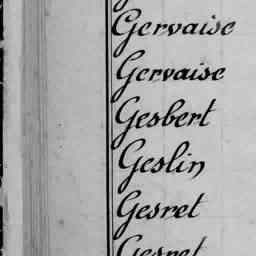 Gervaise
Gervaise
Gesbert
Geslin
Gesret
Gesret